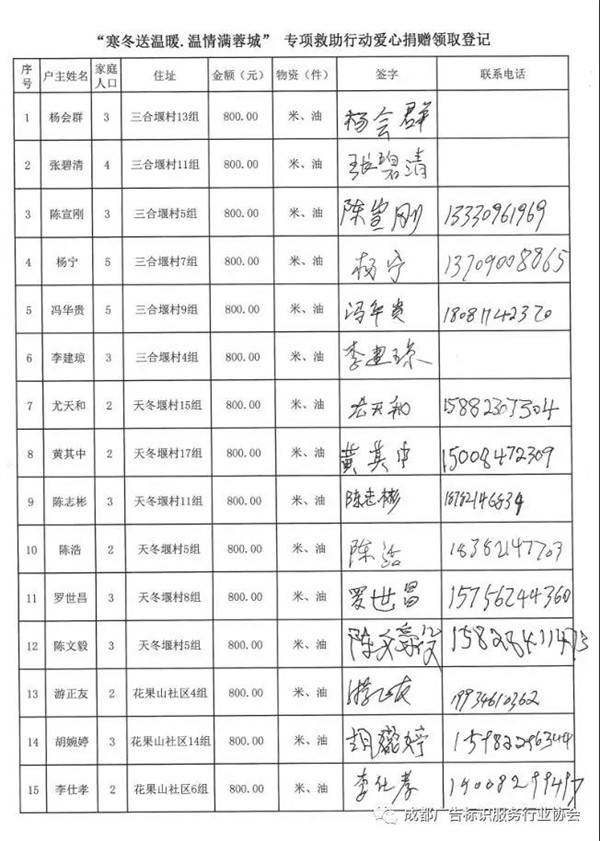 “寒冬送温暖.温情满蓉城” 专项救助行动爱心捐赠领取登记
序号 户主姓名 家庭人口 住址 金额（元） 物资（件） 签字 联系电话
1 杨会群 3 三合堰村13组 800.00 米、油 杨会群
2 张碧清 4 三合堰村11组 800.00 米、油 张碧清
3 陈宣刚 3 三合堰村5组 800.00 米、油 陈宣刚 13330961969
4 杨宁 5 三合堰村7组 800.00 米、油 杨宁 13709008865
5 冯华贵 5 三合堰村9组 800.00 米、油 冯华贵 18081142370
6 李建琼 3 三合堰村4组 800.00 米、油 李建琼
7 尤天和 2 天冬堰村15组 800.00 米、油 尤天和 15882307304
8 黄其中 2 天冬堰村17组 800.00 米、油 黄其中 15008472309
9 陈志彬 3 天冬堰村11组 800.00 米、油 陈志彬
10 陈浩 2 天冬堰村5组 800.00 米、油 陈浩 18382147703
11 罗世昌 3 天冬堰村8组 800.00 米、油 罗世昌 15756244360
12 陈文毅 3 天冬堰村5组 800.00 米、油 陈文毅
13 游正友 2 花果山社区4组 800.00 米、油 19934610362
14 胡婉婷 3 花果山社区14组 800.00 米、油 胡婉婷 15982296344
15 李仕孝 2 花果山社区6组 800.00 米、油 李仕孝
成都广告标识服务行业协会